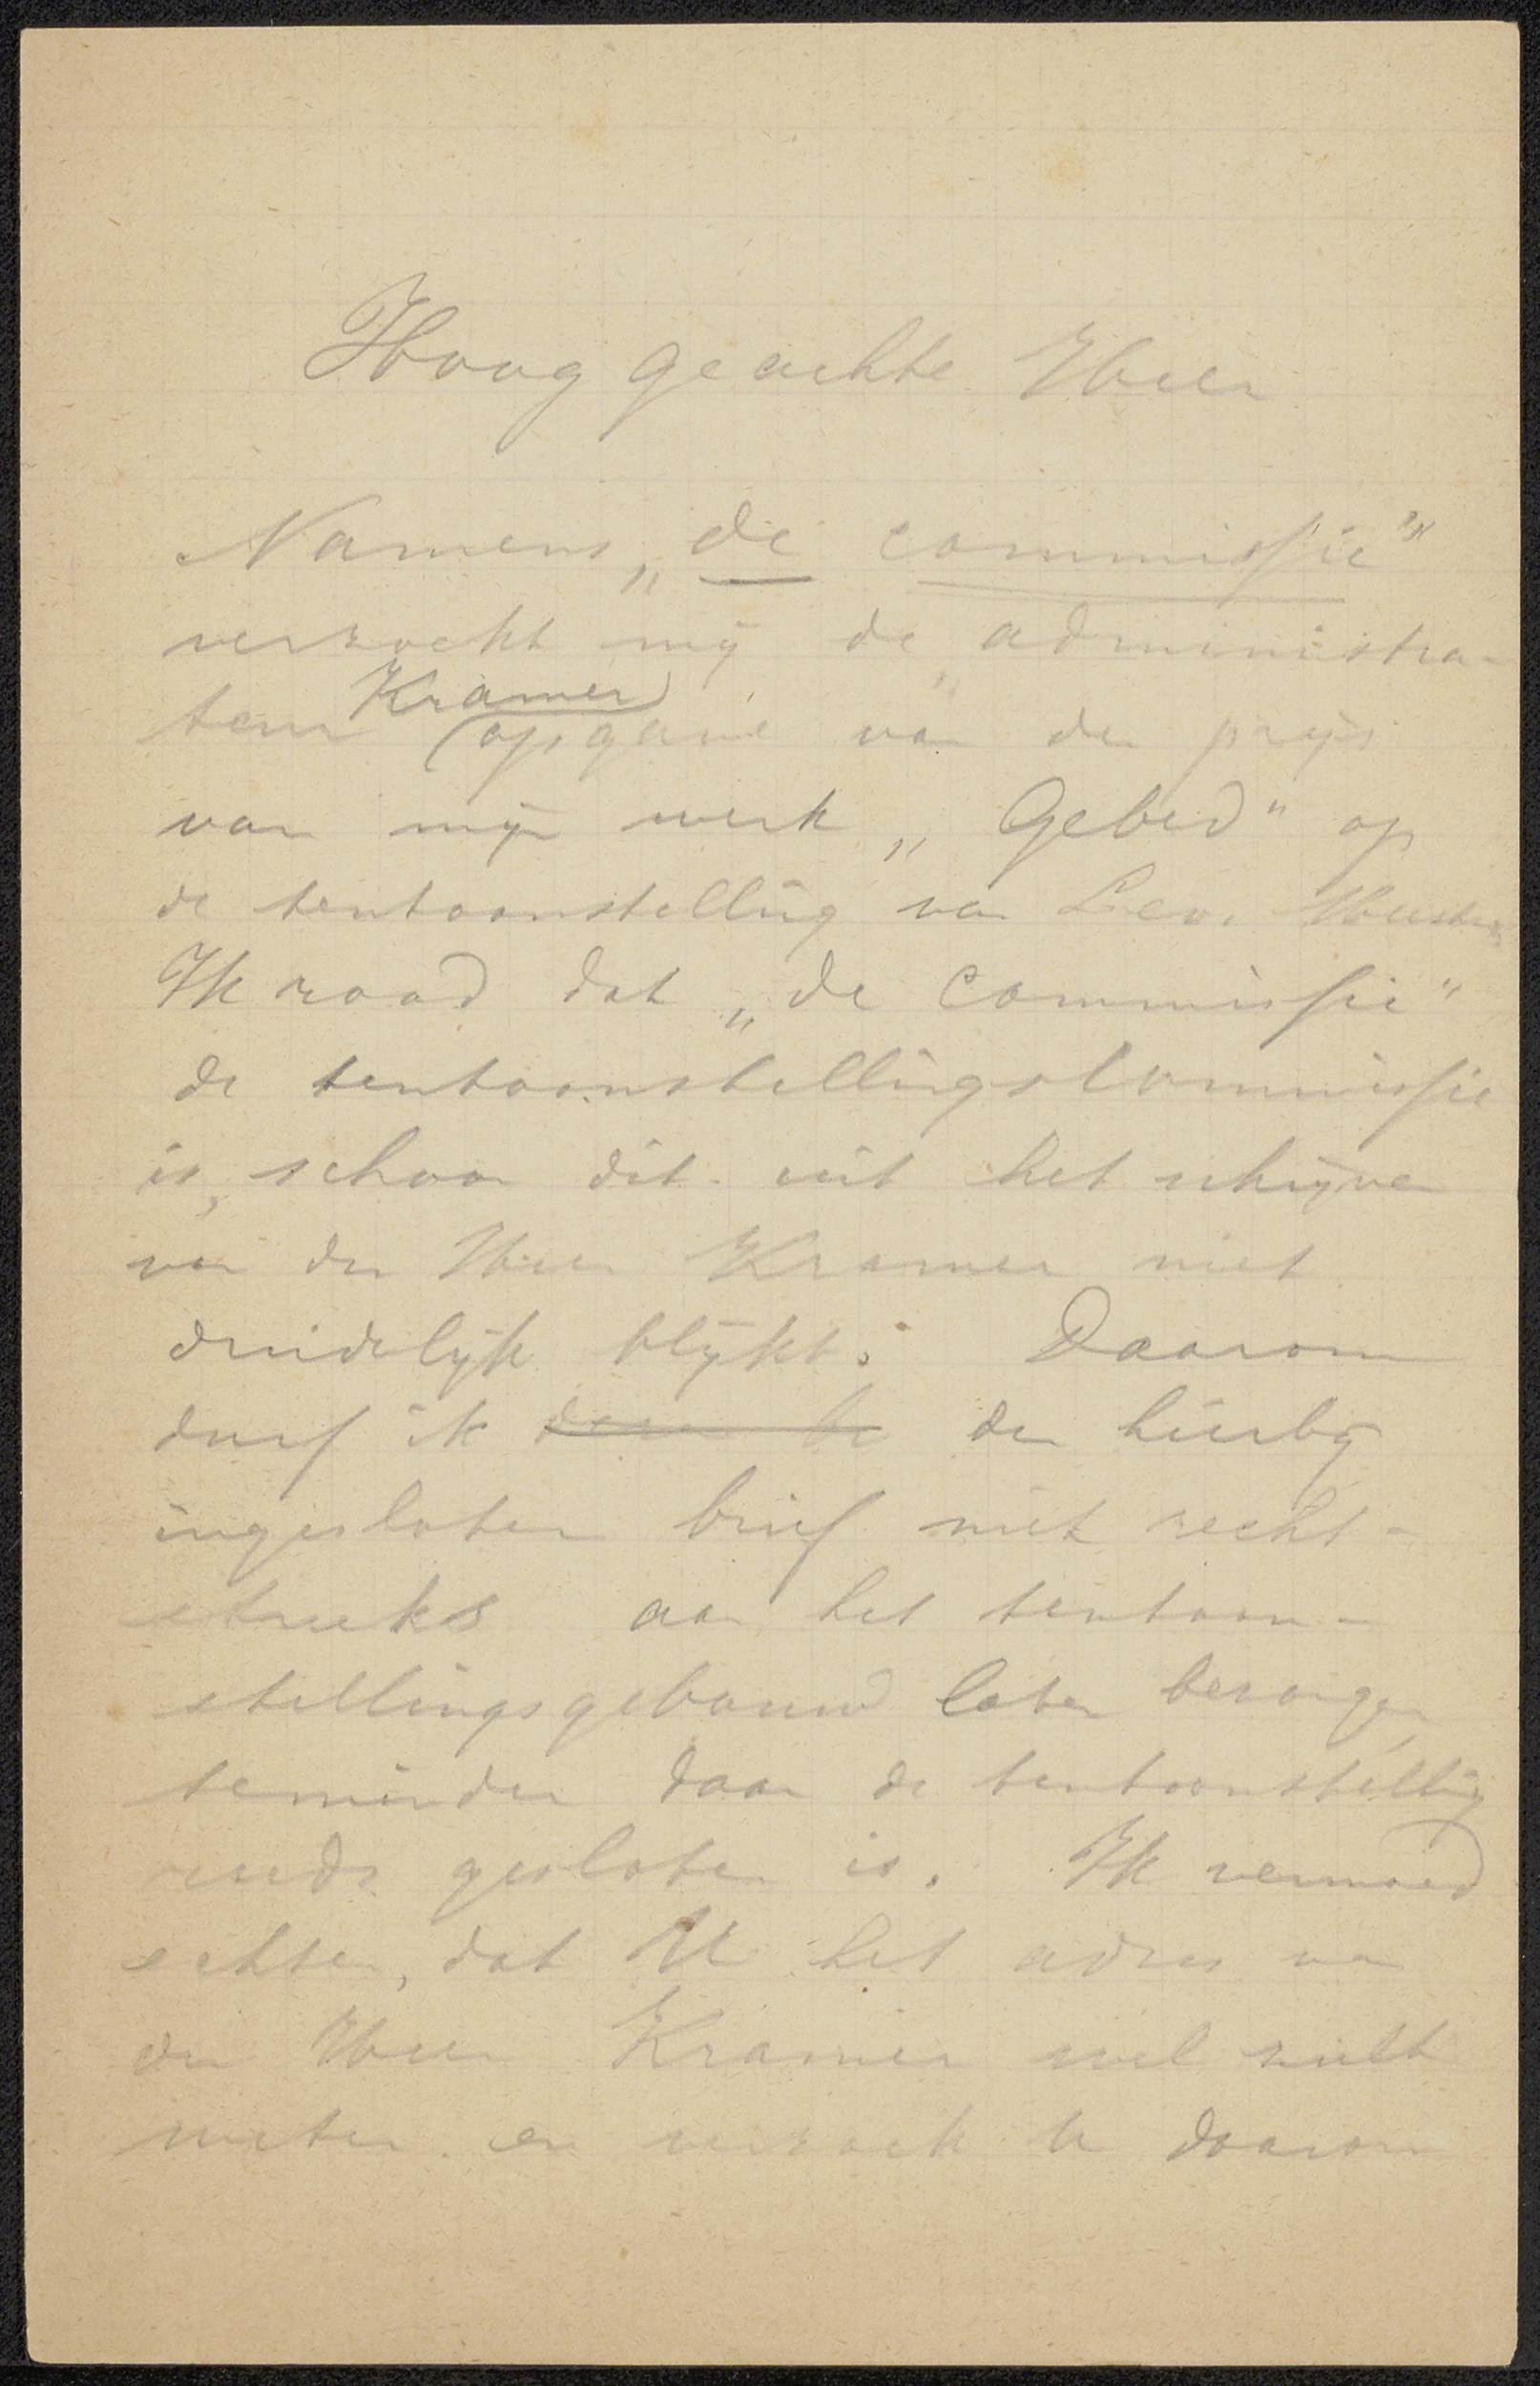 Hoog geachte Heer
Namens „de commissie"
verzoekt mij de administra-
teur Kramer opgave van den prijs
van mijn werk „Gebed" op
de tentoonstelling van Lev. Meesters
Ik raad dat „de commissie"
de tentoonstellingscommissie
is, schoon dit uit het schrijven
van den Heer Kramer niet
duidelijk blijkt. Daarom
durf ik den hierbij
ingesloten brief niet recht-
streeks aan het tentoon-
stellingsgebouw laten bezorgen
teminder daar de tentoonstelling
reeds gesloten is. Ik vermoed
echter, dat U het adres van
den Heer Kramer wel zult
weten en verzoek U daarom